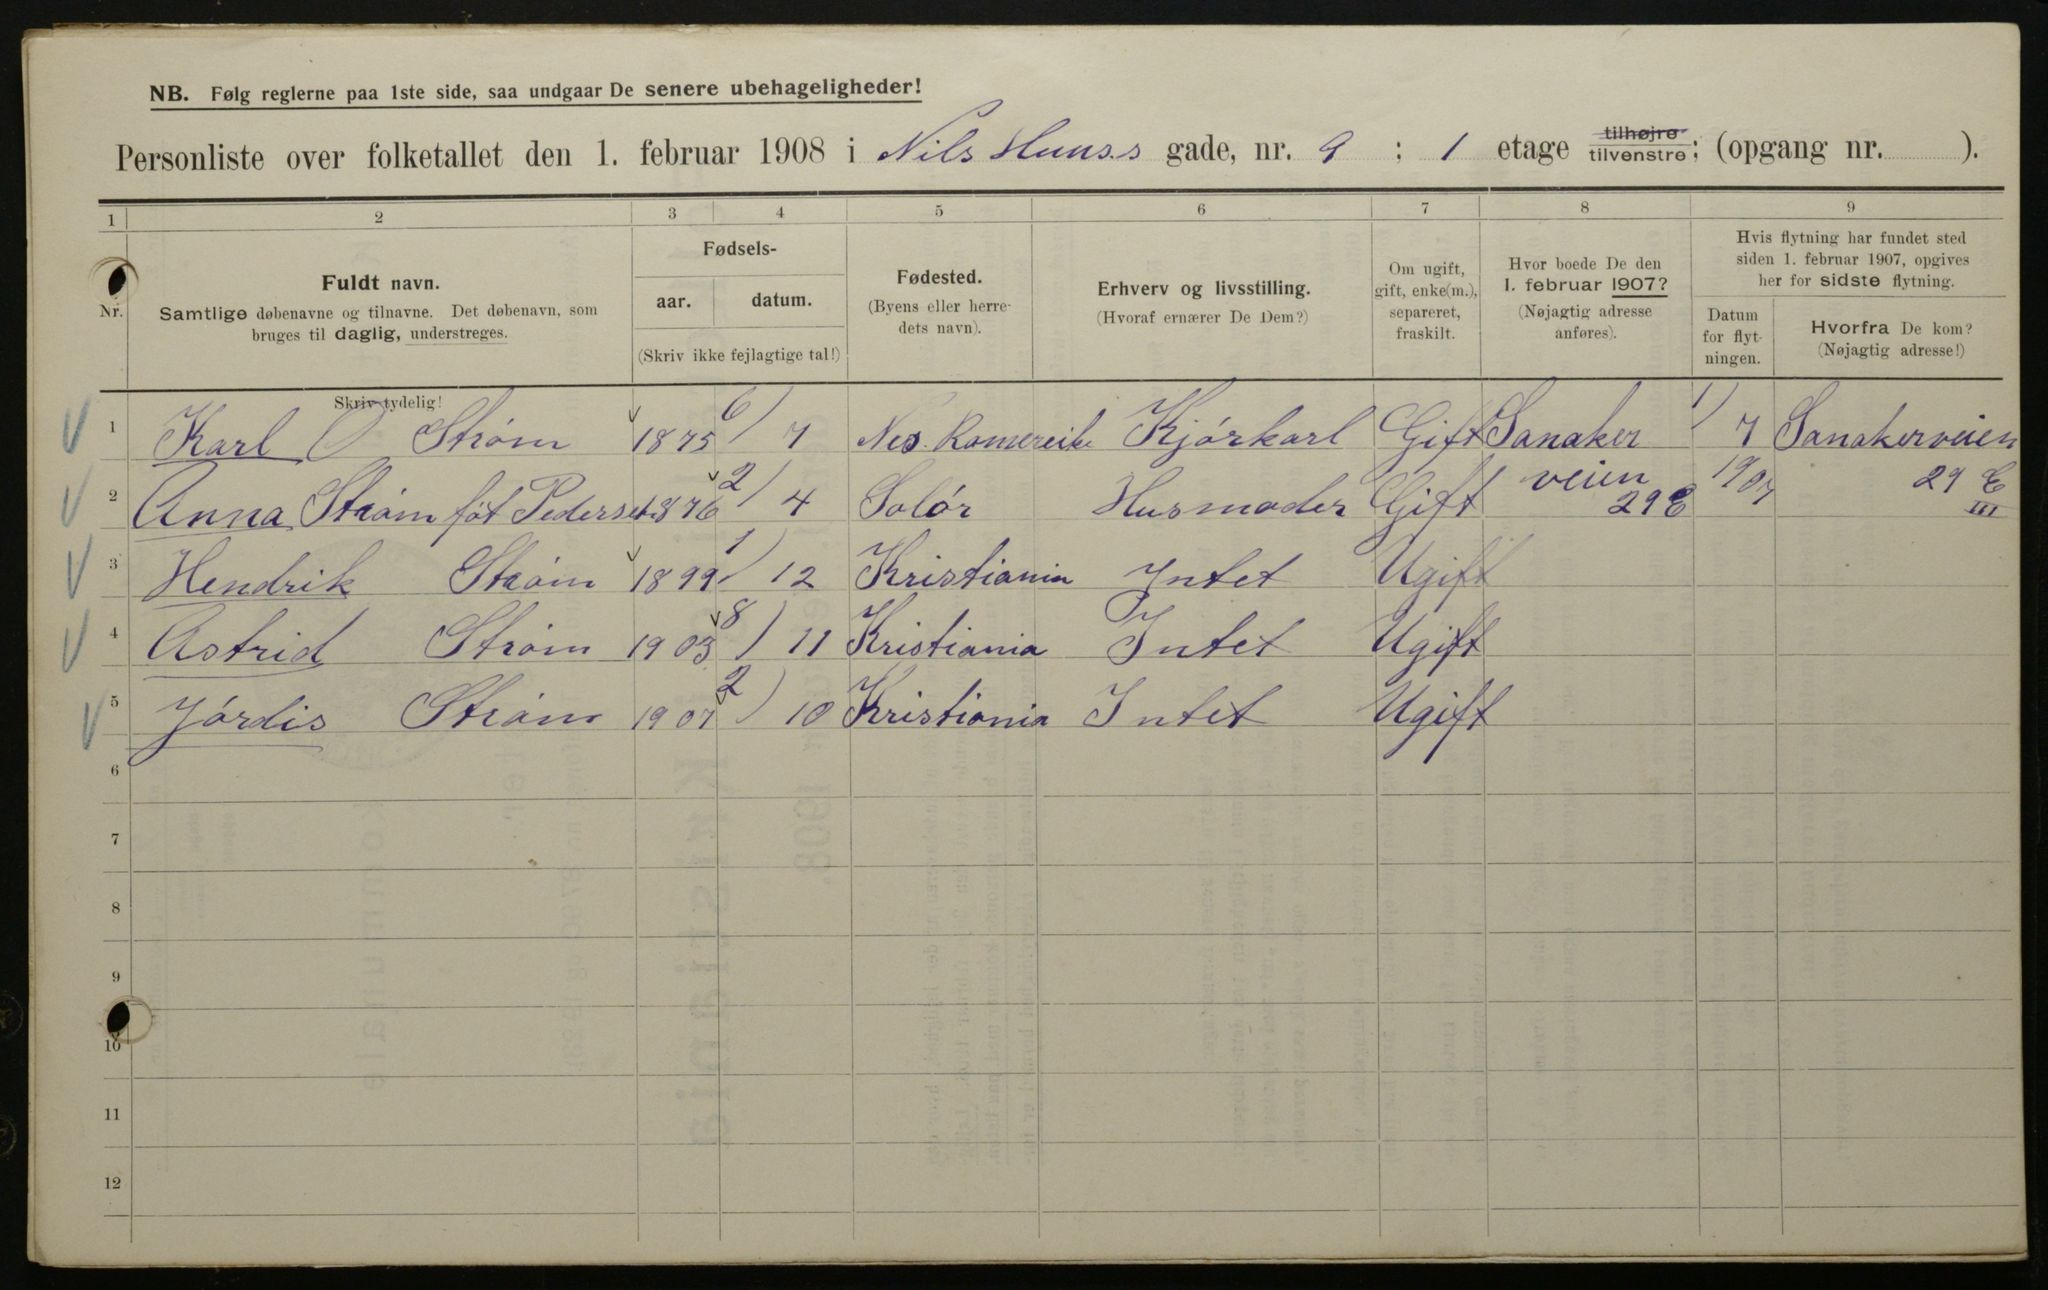 NB. Følg reglerne paa 1ste side, saa undgaar De senere ubehageligheder!
Personliste over folketallet den 1. februar 1908 i Nils Huuss gade, nr. 9 ; 1 etage tilhøjre tilvenstre; (opgang nr. ).
1 2 3 4 5 6 7 8 9
Nr.
Fuldt navn.
Samtlige døbenavne og tilnavne. Det døbenavn, som
bruges til daglig, understreges.
Skriv tydelig!
Fødsels-
aar. datum.
(Skriv ikke fejlagtige tal!)
Fødested.
(Byens eller herre-
dets navn).
Erhverv og livsstilling.
(Hvoraf ernærer De Dem?)
Om ugift,
gift, enke(m.),
separeret,
fraskilt.
Hvor boede De den
1. februar 1907?
(Nøjagtig adresse
anføres).
Hvis flytning har fundet sted
siden 1. februar 1907, opgives
her for sidste flytning.
Datum
for flyt-
ningen.
Hvorfra De kom?
(Nøjagtig adresse!)
1 Karl O Strøm 1875 6/7 Nes Romereike Kjørkarl Gift Sanaker 1/7 Sanakerveien
2 Anna Strøm føt Pedersen 1876 2/4 Solør Husmoder Gift veien 29 E 1907 29 E III
3 Hendrik Strøm 1899 1/12 Kristiania Intet Ugift
4 Astrid Strøm 1903 8/11 Kristiania Intet Ugift
5 Jørdis Strøm 1907 2/10 Kristiania Intet Ugift
6
7
8
9
10
11
12